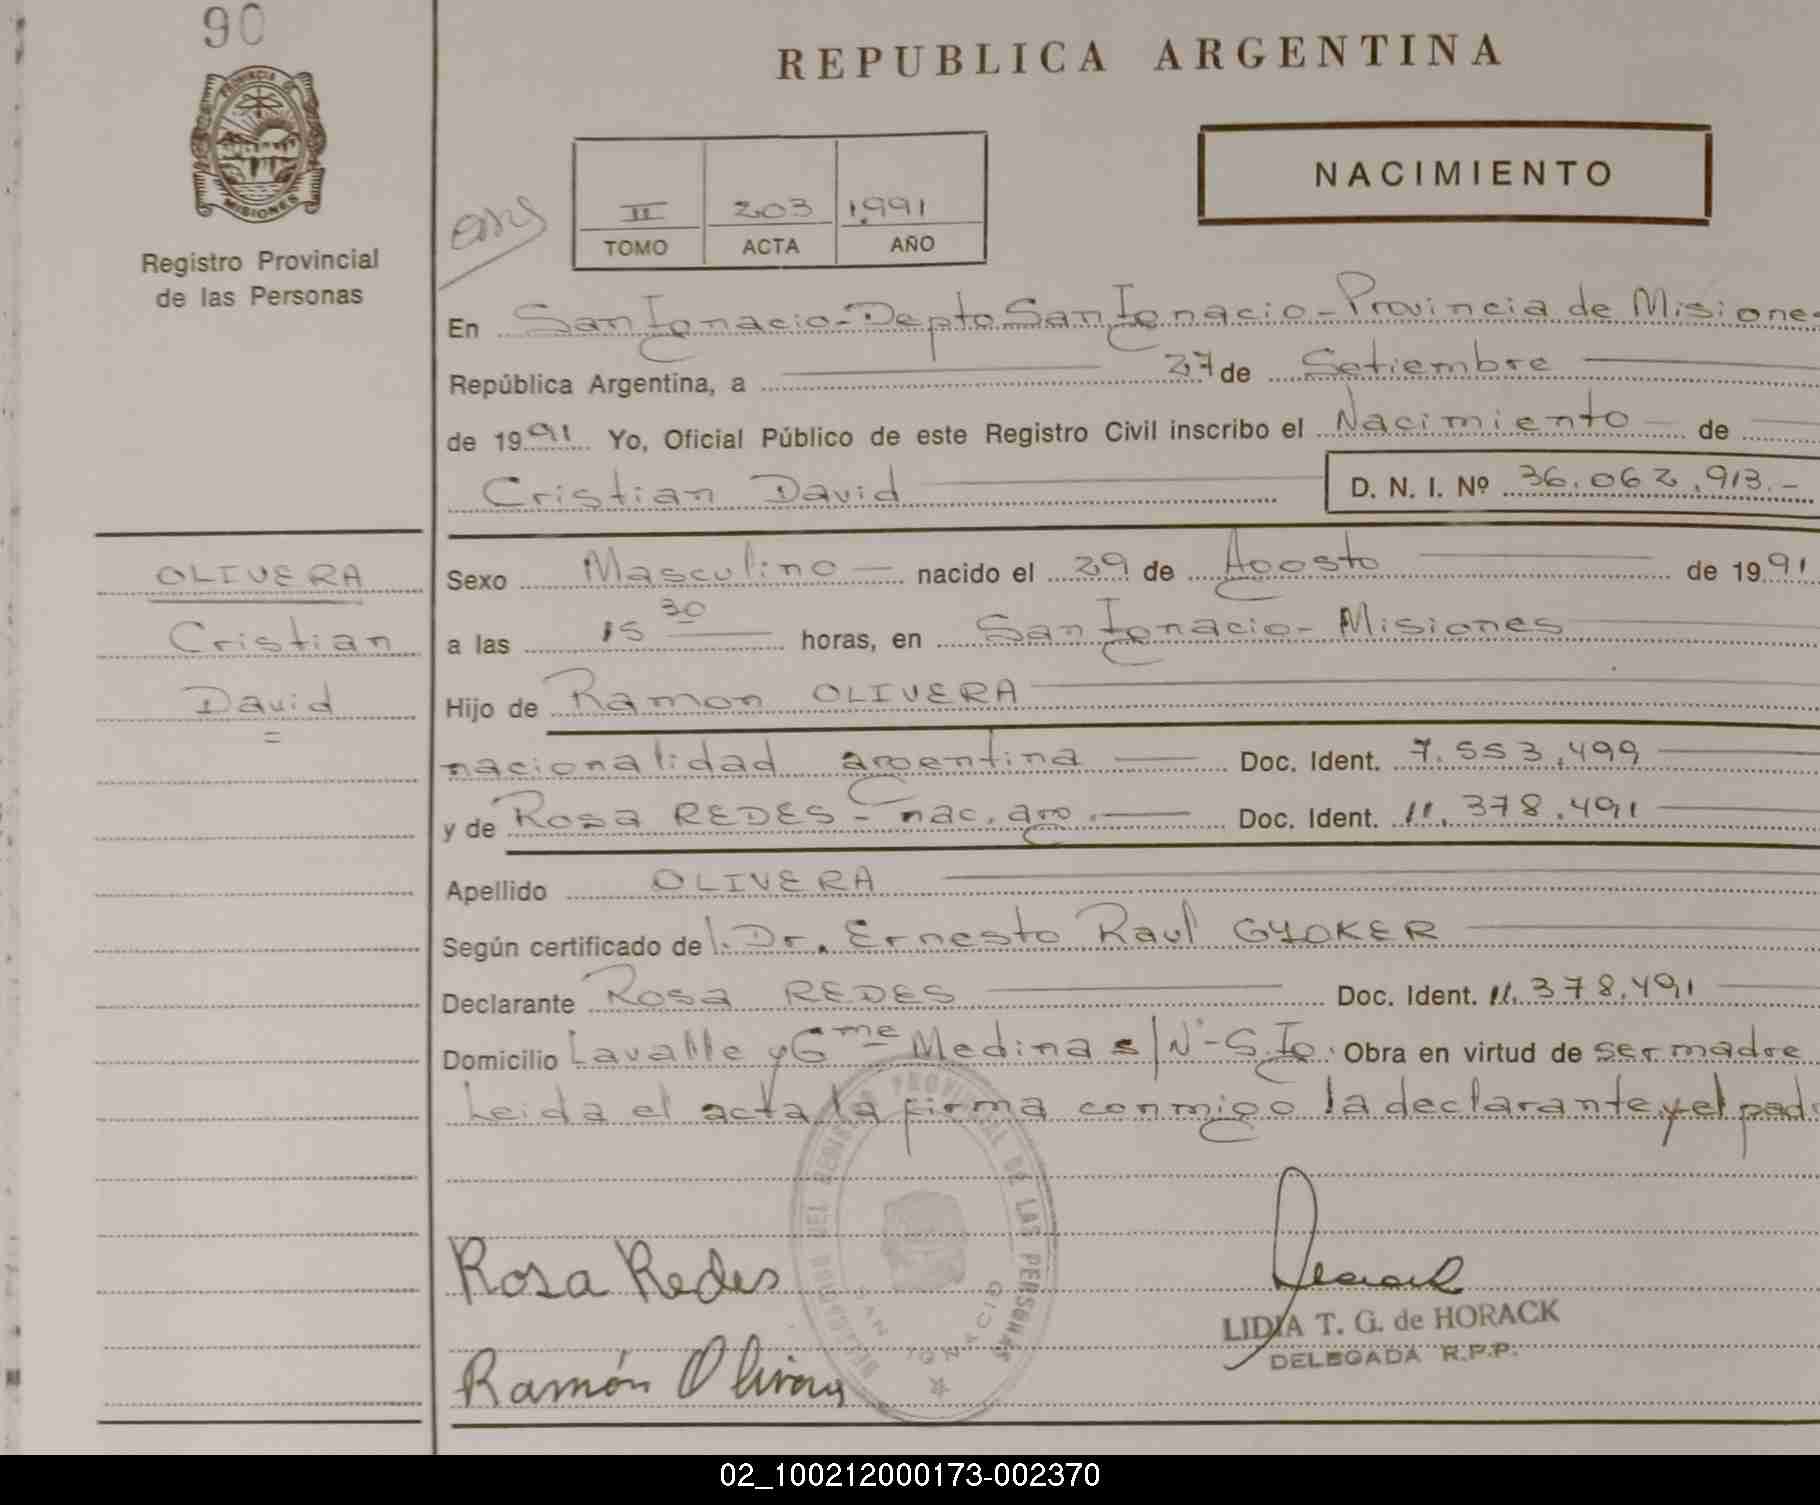 90
REPUBLICA ARGENTINA
PROVINCIA DE
MISIONES
NACIMIENTO
II 203 1991
TOMO ACTA AÑO
Registro Provincial
de las Personas
En San Ignacio - Depto San Ignacio - Provincia de Misiones
República Argentina, a 27 de Setiembre
de 1991 Yo, Oficial Público de este Registro Civil inscribo el Nacimiento de
Cristian David D. N. I. Nº 36.062.913.-
OLIVERA
Cristian
David
Sexo Masculino nacido el 29 de Agosto de 1991
a las 15 30 horas, en San Ignacio - Misiones
Hijo de Ramon OLIVERA
nacionalidad argentina Doc. Ident. 7.553.499
y de Rosa REDES - nac. arg. Doc. Ident. 11.378.491
Apellido OLIVERA
Según certificado del. Dr. Ernesto Raul GYOKER
Declarante Rosa REDES Doc. Ident. 11.378.491
Domicilio Lavalle y Gme Medina s/Nº - S. Ig. Obra en virtud de ser madre
Leida el acta la firma conmigo la declarante y el pad
DEL REGISTRO PROVINCIAL DE LAS PERSONAS
SAN IGNACIO
Rosa Redes
LIDIA T. G. de HORACK
DELEGADA R.P.P.
Ramón Olivera
02_100212000173-002370